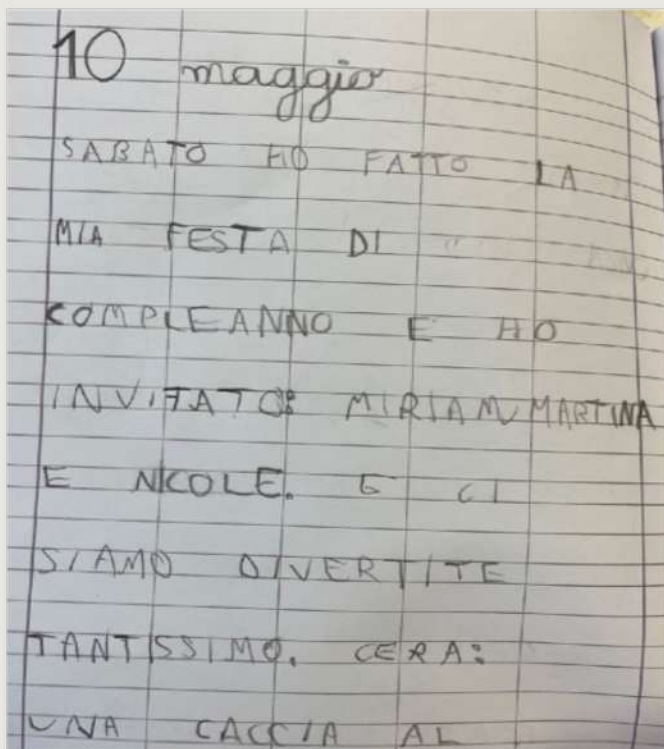 10 maggio
SABATO HO FATTO LA
MIA FESTA DI
COMPLEANNO E HO
INVITATO: MIRIAM MARTINA
E NICOLE. E CI
SIAMO DIVERTITE
TANTISSIMO. CERA:
UNA CACCIA AL